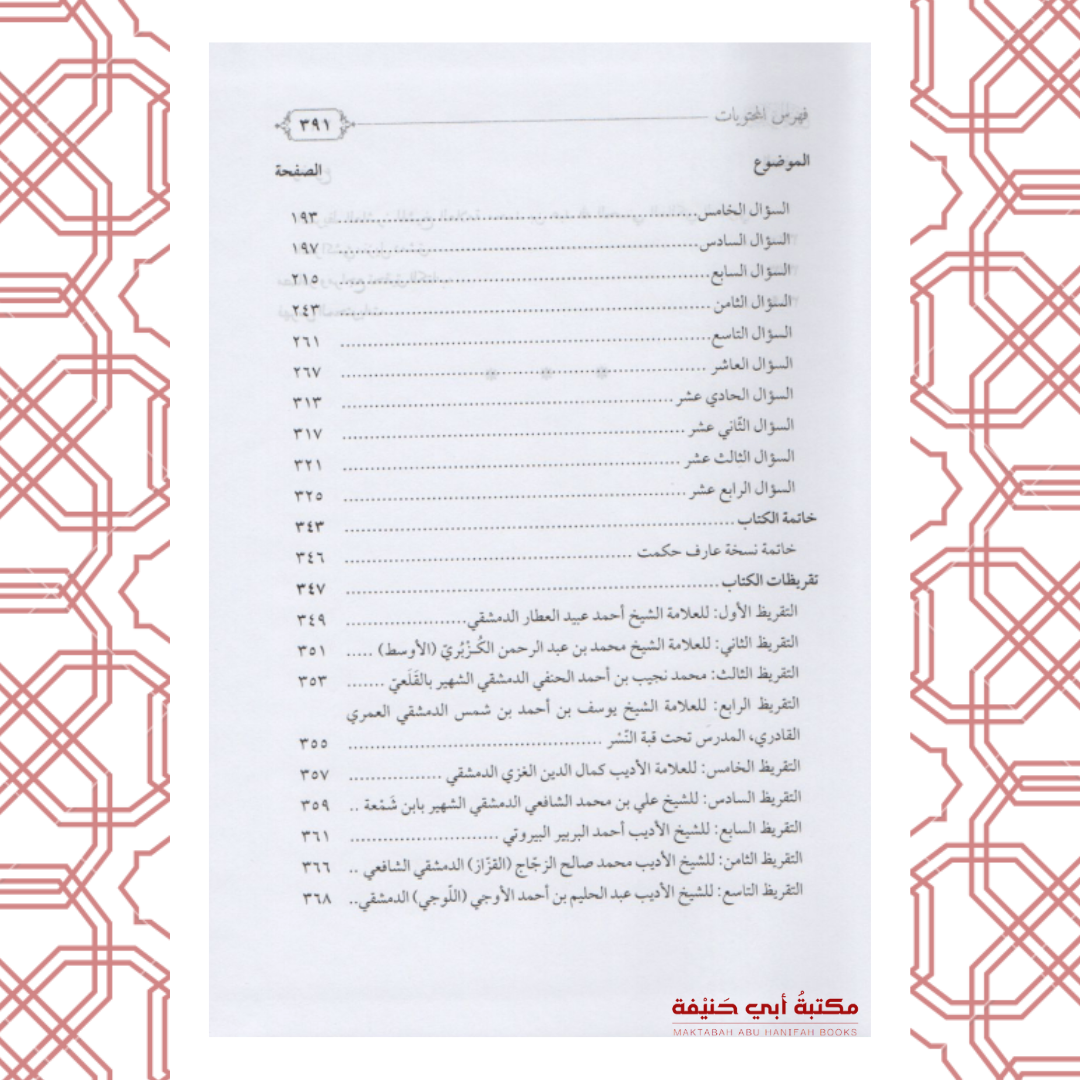 فهرس المحتويات ٣٩١
الموضوع الصفحة
السؤال الخامس ١٩٣
السؤال السادس ١٩٧
السؤال السابع ٢١٥
السؤال الثامن ٢٤٣
السؤال التاسع ٢٦١
السؤال العاشر ٢٦٧
السؤال الحادي عشر ٣١٣
السؤال الثّاني عشر ٣١٧
السؤال الثالث عشر ٣٢١
السؤال الرابع عشر ٣٢٥
خاتمة الكتاب ٣٤٣
خاتمة نسخة عارف حكمت ٣٤٦
تقريظات الكتاب ٣٤٧
التقريظ الأول: للعلامة الشيخ أحمد عبيد العطار الدمشقي ٣٤٩
التقريظ الثاني: للعلامة الشيخ محمد بن عبد الرحمن الكُزْبُريّ (الأوسط) ٣٥١
التقريظ الثالث: محمد نجيب بن أحمد الحنفي الدمشقي الشهير بالقَلَعيّ ٣٥٣
التقريظ الرابع: للعلامة الشيخ يوسف بن أحمد بن شمس الدمشقي العمري
القادري، المدرس تحت قبة النّسْر ٣٥٥
التقريظ الخامس: للعلامة الأديب كمال الدين الغزي الدمشقي ٣٥٧
التقريظ السادس: للشيخ علي بن محمد الشافعي الدمشقي الشهير بابن شَمْعة ٣٥٩
التقريظ السابع: للشيخ الأديب أحمد البربير البيروتي ٣٦١
التقريظ الثامن: للشيخ الأديب محمد صالح الزجّاج (القزّاز) الدمشقي الشافعي ٣٦٦
التقريظ التاسع: للشيخ الأديب عبد الحليم بن أحمد الأوجي (اللّوجي) الدمشقي ٣٦٨
مكتبةُ أبي حَنيْفة
MAKTABAH ABU HANIFAH BOOKS